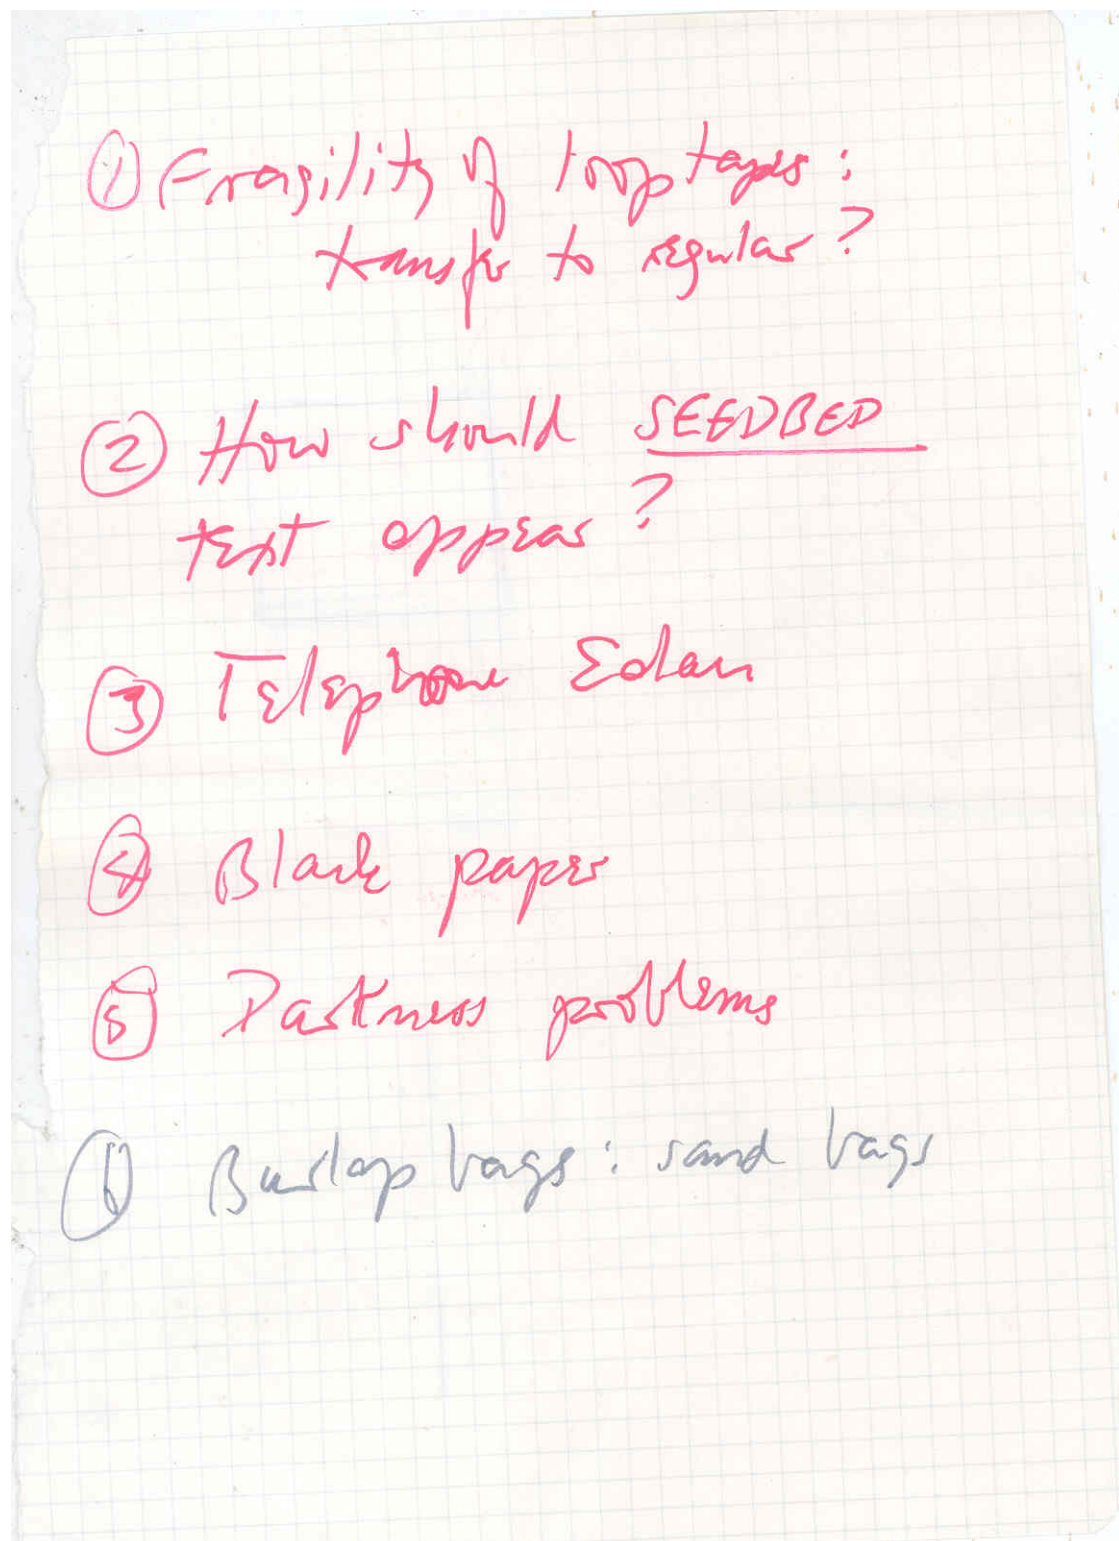 ① Fragility of loop tapes:
transfer to regular?
② How should SEEDBED
text appear?
③ Telephone Edan
④ Black paper
⑤ Darkness problems
⑥ Burlap bags: sand bags